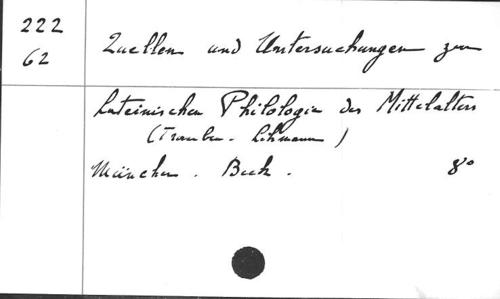 222
62
Quellen und Untersuchungen zur
lateinischen Philologie des Mittelalters
(Traube - Lehmann)
München. Beck. 8°